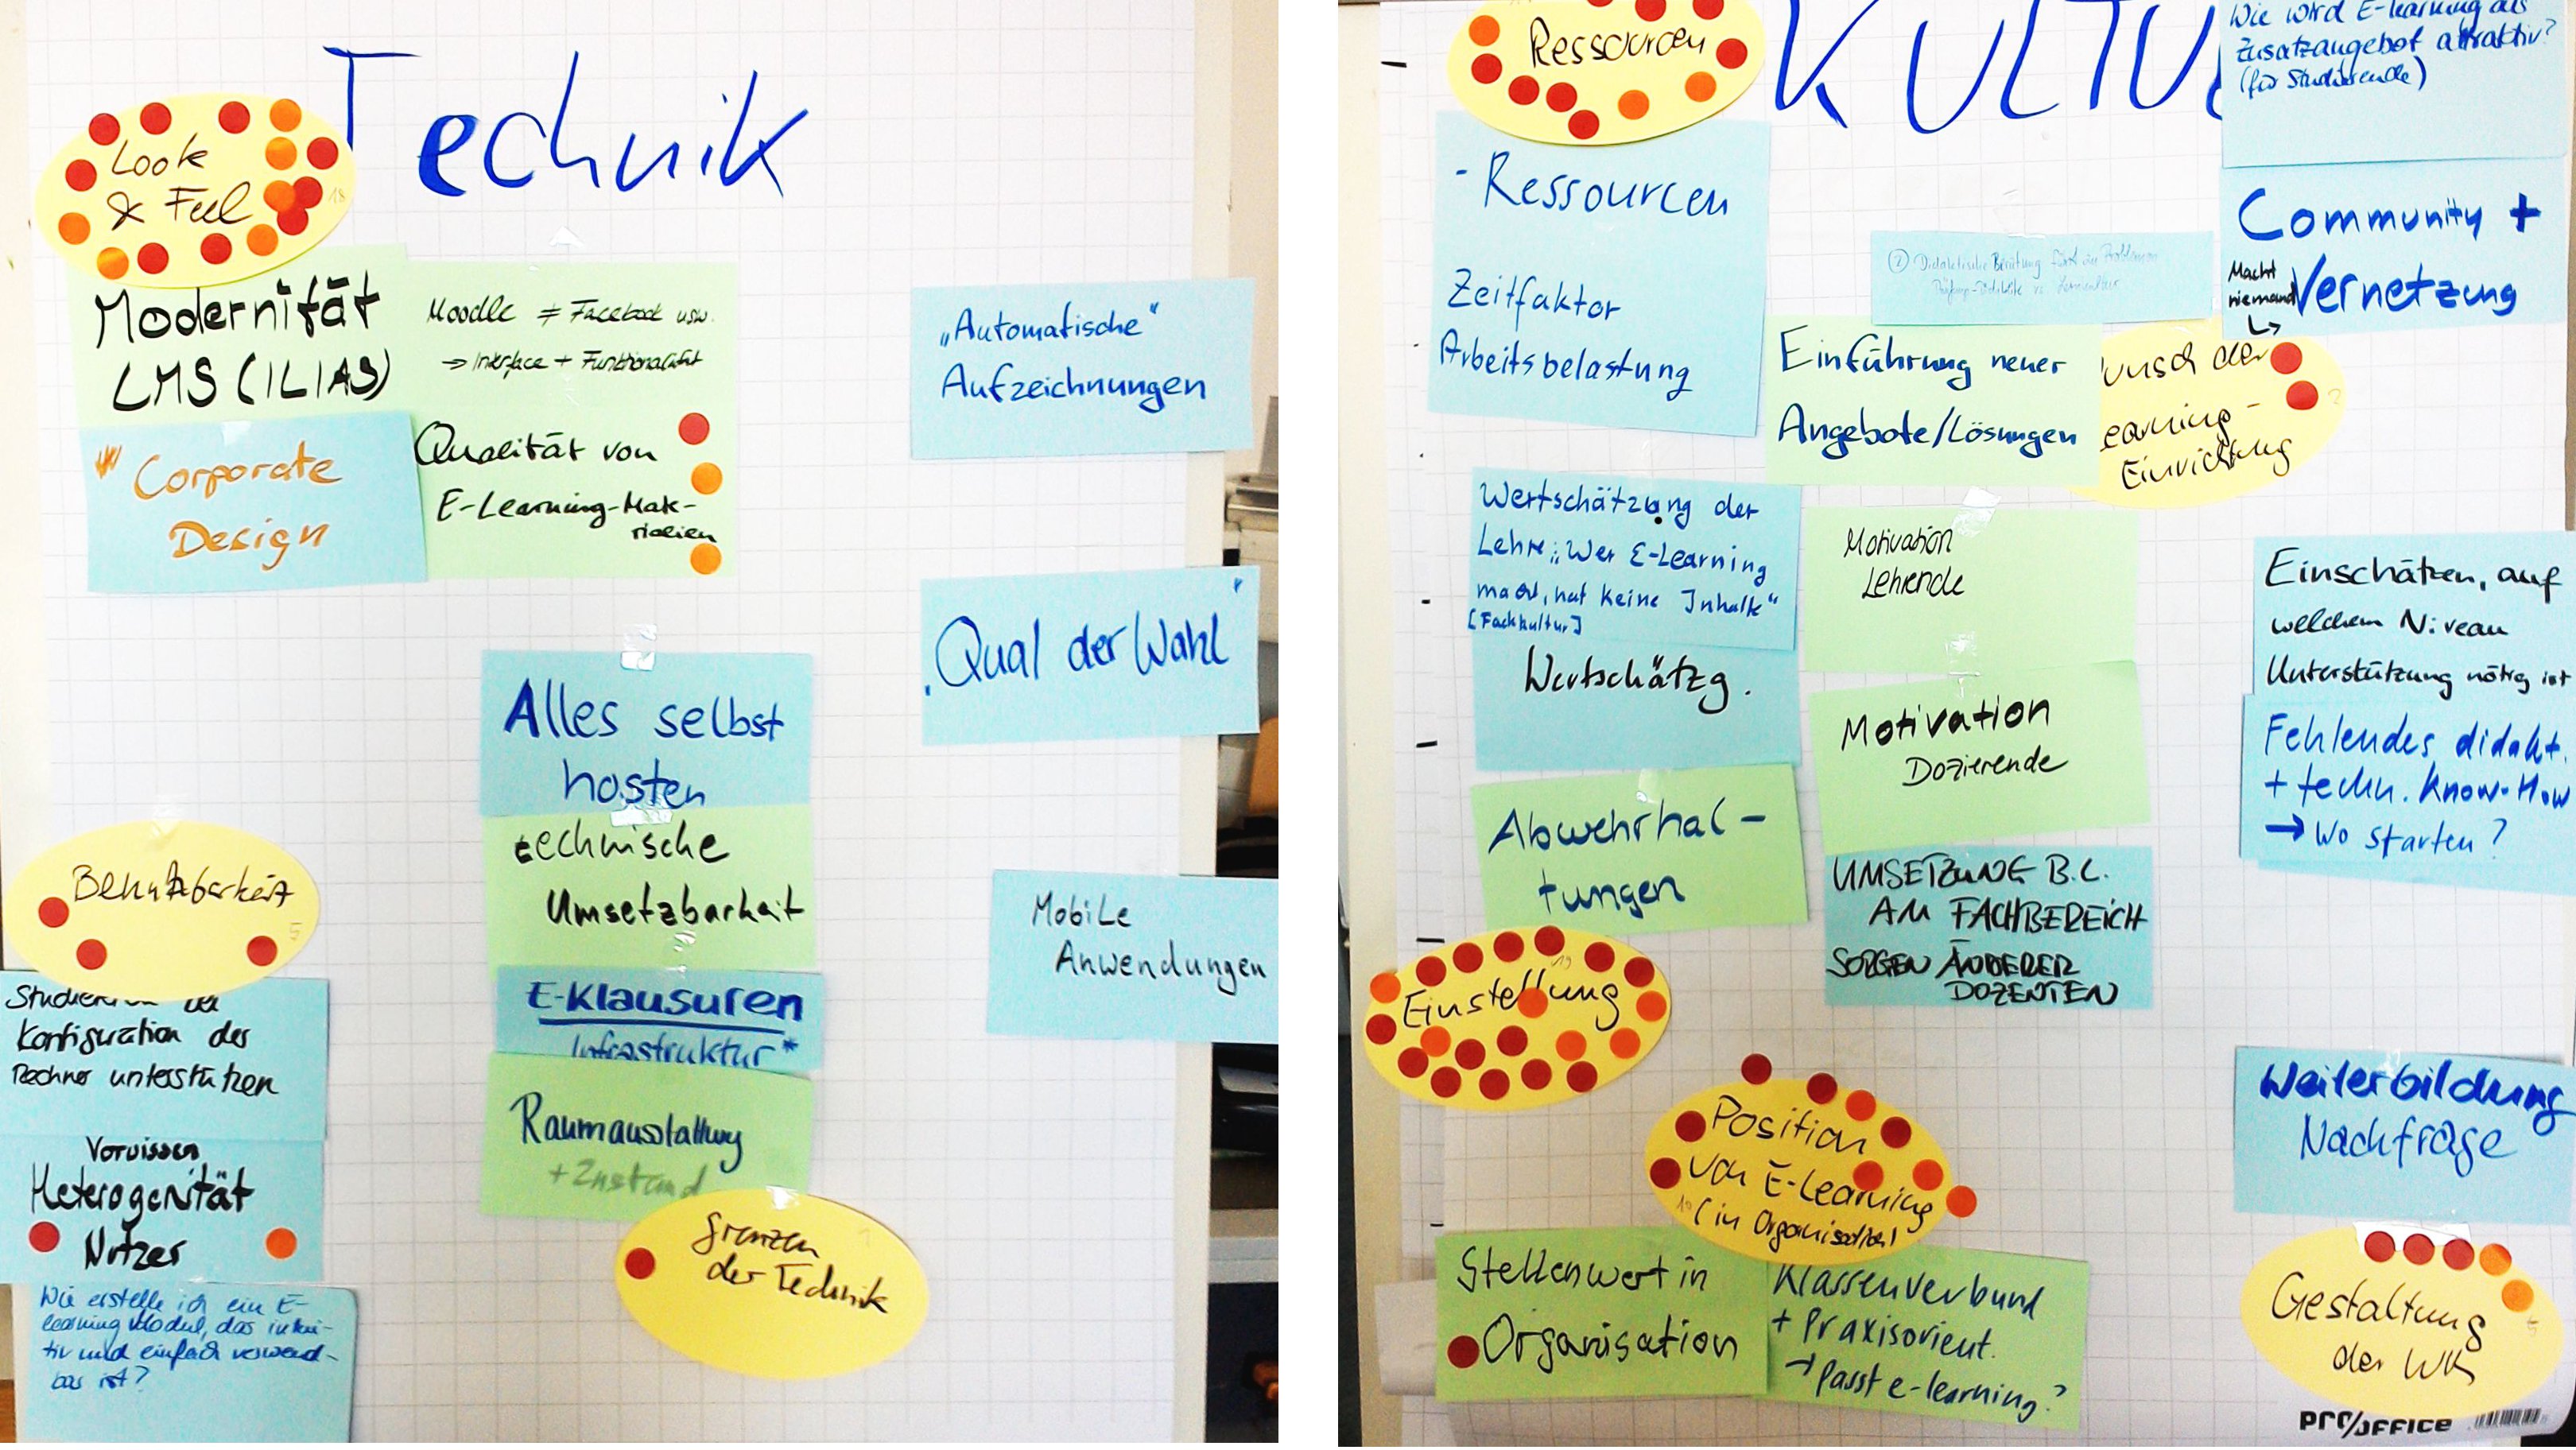 Technik
Look
& Feel
18
Modernität
LMS (ILIAS)
Moodle ≠ Facebook usw.
→ Interface + Funktionalität
Qualität von
E-Learning-Mate-
rialien
Corporate
Design
„Automatische“
Aufzeichnungen
„Qual der Wahl“
Alles selbst
hosten
technische
Umsetzbarkeit
E-Klausuren
Infrastruktur*
Raumausstattung
+ Zustand
Grenzen
der Technik
1
Mobile
Anwendungen
Benutzbarkeit
5
Studierende bei
Konfiguration der
Rechner unterstützen
Vorwissen
Heterogenität
Nutzer
Wie erstelle ich ein E-
learning Modul, das intui-
tiv und einfach verwend-
bar ist?
KULTU
Ressourcen
- Ressourcen
Zeitfaktor
Arbeitsbelastung
Wie wird E-learning als
Zusatzangebot attraktiv?
(für Studierende)
Community +
Vernetzung
Macht
niemand
↳
② Didaktische Beratung
Einführung neuer
Angebote/Lösungen
unsch der
earning-
Einrichtung
2
Wertschätzung der
Lehre: „Wer E-Learning
macht, hat keine Inhalte“
[Fachkultur]
Wertschätzg.
Abwehrhal-
tungen
Motivation
Lehrende
Motivation
Dozierende
UMSETZUNG B.L.
AM FACHBEREICH
SORGEN ANDERER
DOZENTEN
Einschätzen, auf
welchem Niveau
Unterstützung nötig ist
Fehlendes didakt.
+ techn. Know-How
→ Wo starten?
Einstellung
19
Position
von E-Learning
(in Organisation)
10
Stellenwert in
Organisation
Klassenverbund
+ Praxisorient.
→ Passt e-learning?
Weiterbildung
Nachfrage
Gestaltung
der WK
5
PRO/OFFICE